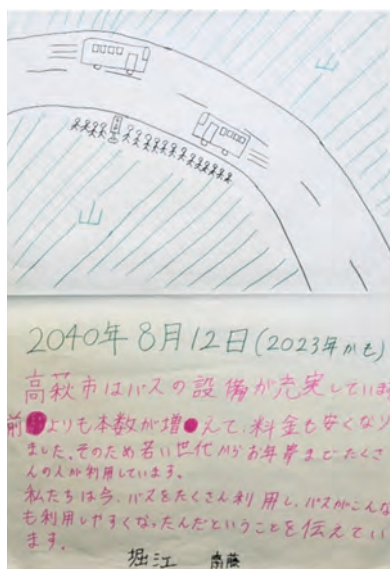 山
山
2040年8月12日(2023年かも)
高萩市はバスの設備が充実しています
前よりも本数が増えて、料金も安くなり
ました。そのため若い世代からお年寄までたくさ
んの人が利用しています。
私たちは今、バスをたくさん利用し、バスがこんな
も利用しやすくなったんだということを伝えてい
ます。
堀江 齋藤